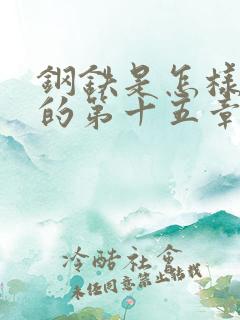 鋼鉄是怎様
的第十五章
冷酷社會
未経同意禁止転載